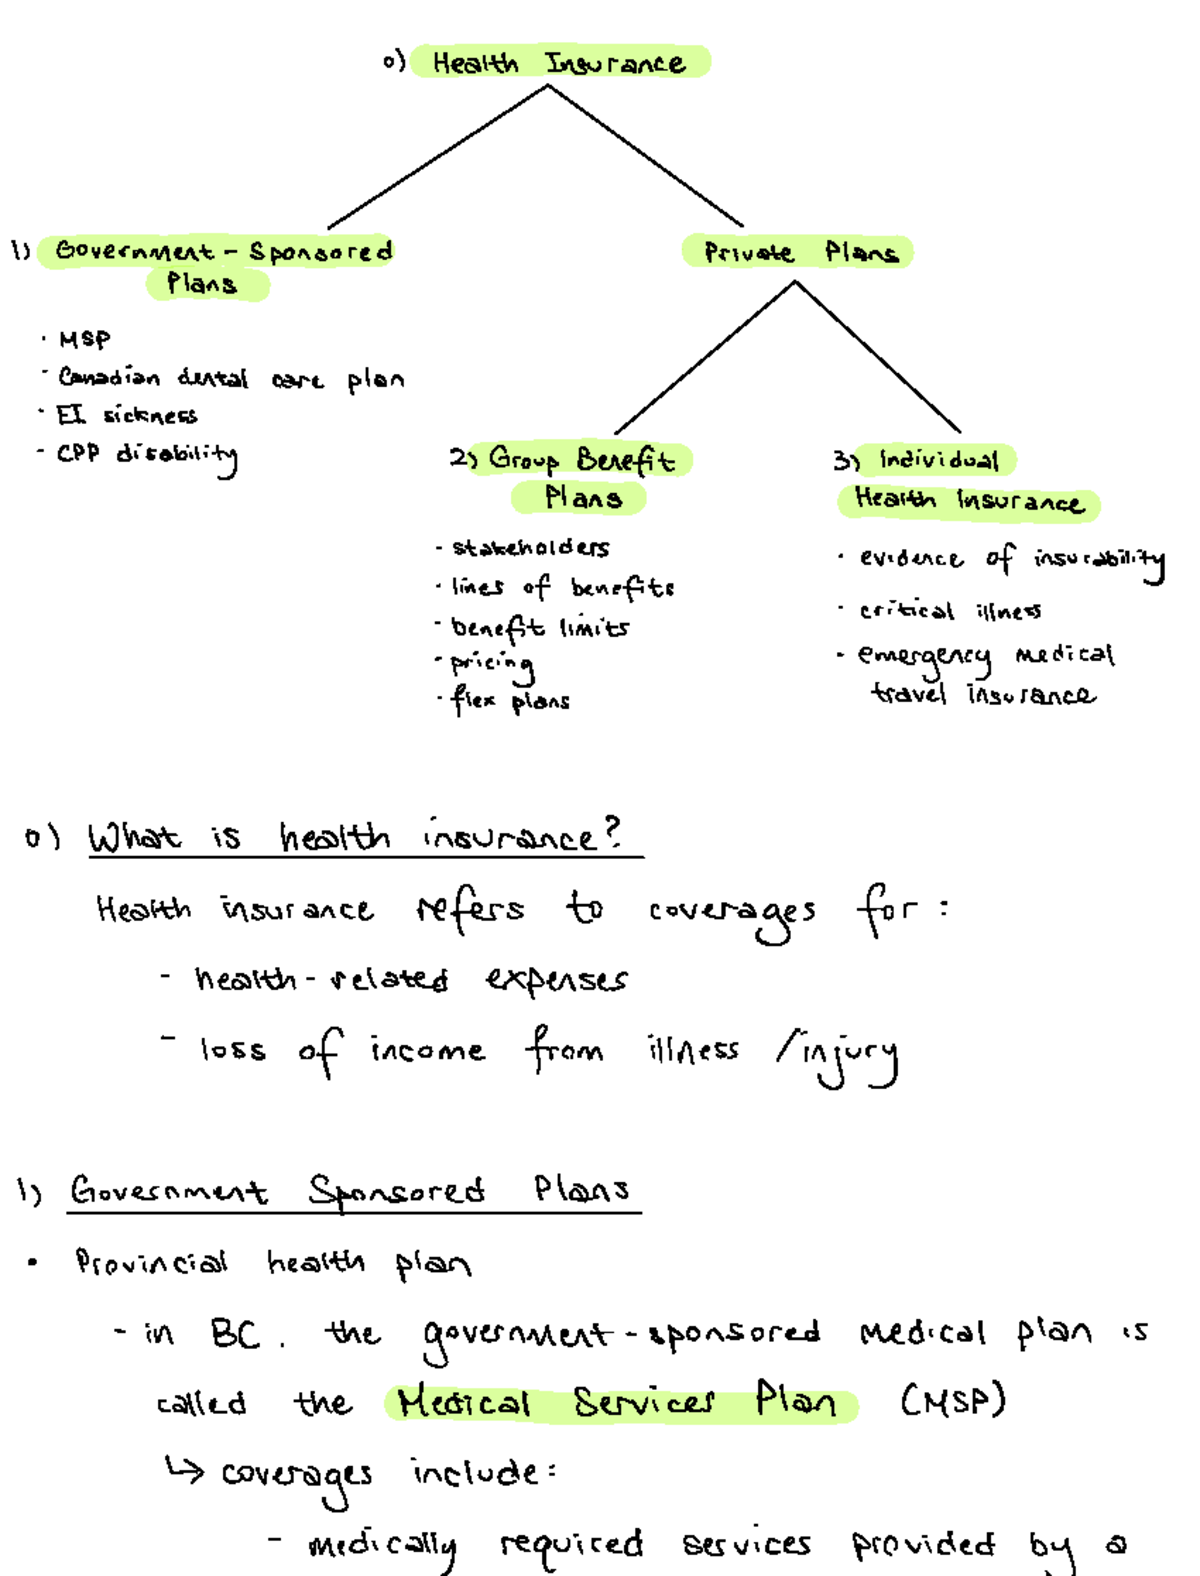 0) Health Insurance
1) Government-Sponsored
Plans
· MSP
- Canadian dental care plan
· EI sickness
- CPP disability
Private Plans
2) Group Benefit
Plans
- stakeholders
· lines of benefits
- benefit limits
- pricing
· flex plans
3) Individual
Health Insurance
· evidence of insurability
· critical illness
- emergency medical
travel insurance
0) What is health insurance?
Health insurance refers to coverages for:
- health-related expenses
- loss of income from illness / injury
1) Government Sponsored Plans
• Provincial health plan
- in BC, the government-sponsored medical plan is
called the Medical Services Plan (MSP)
↳ coverages include:
- medically required services provided by a